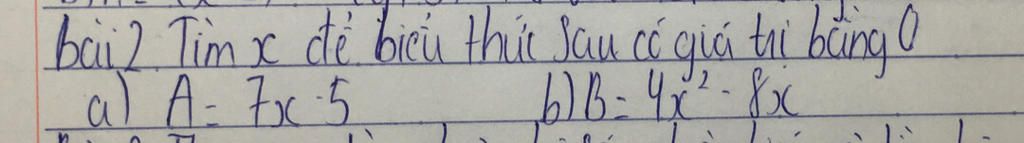 bài 2 Tìm x để biểu thức sau có giá trị bằng 0
a) A = 7x - 5 b) B = 4x² - 8x